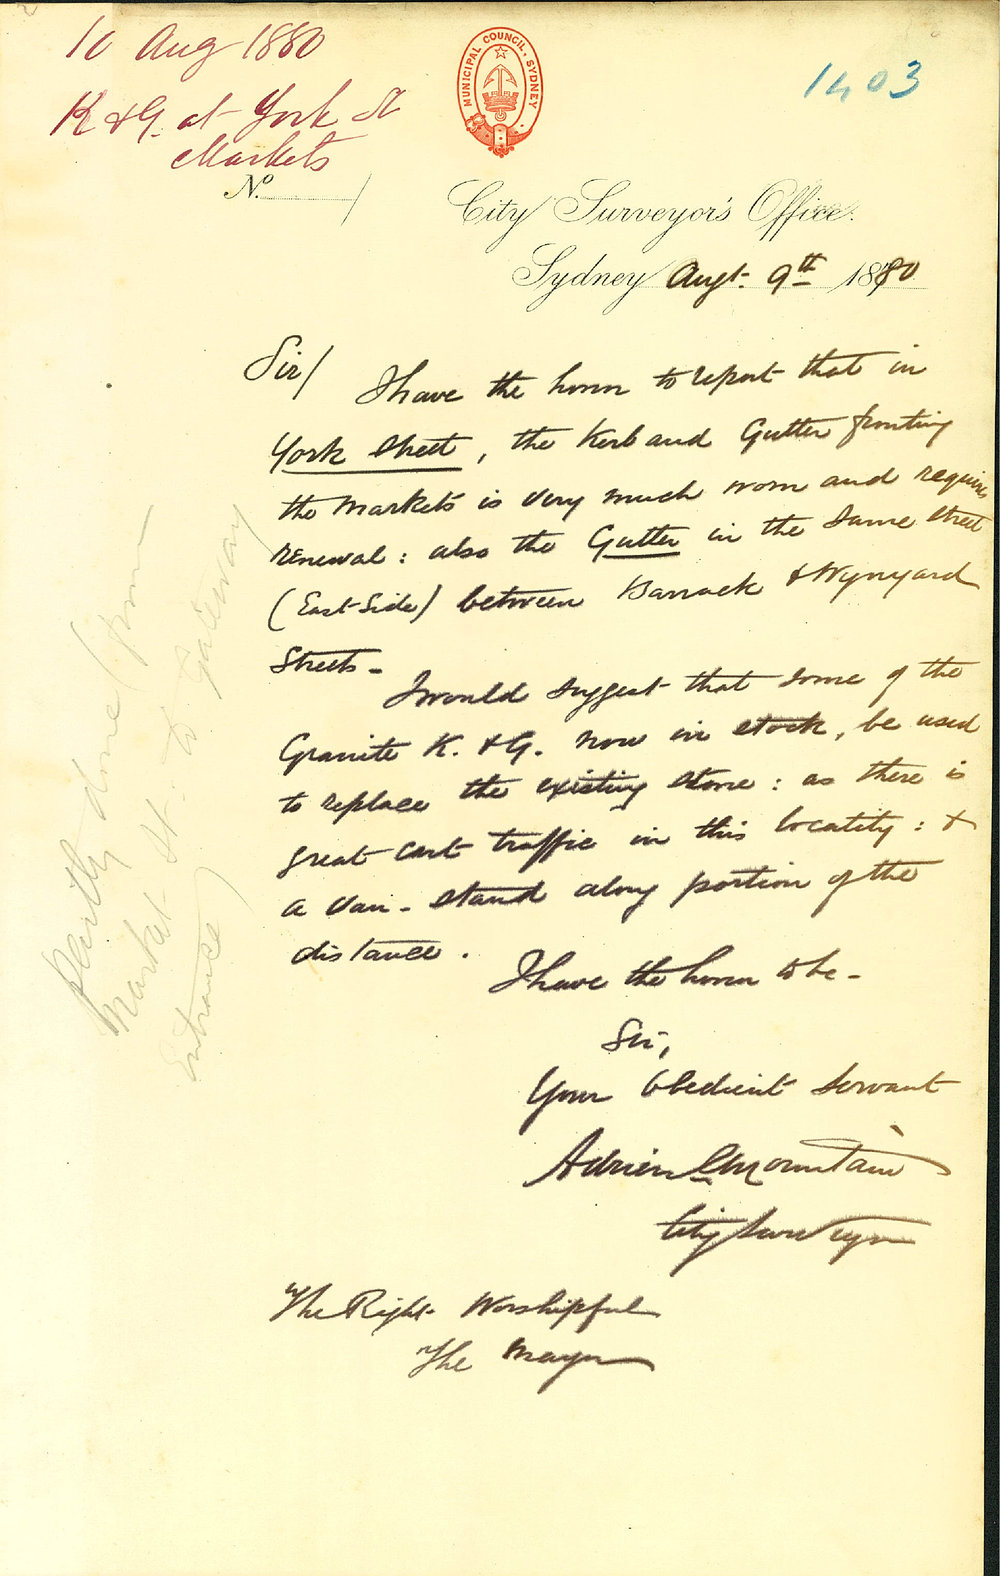 10 Aug 1880
K & G. at York St
Markets
MUNICIPAL COUNCIL. SYDNEY
1403
No.
City Surveyor's Office.
Sydney Augt. 9th 1880
Sir/ I have the honor to report that in
York Street, the Kerb and Gutter fronting
the Markets is very much worn and requires
renewal: also the Gutter in the same street
(East Side) between Barrack & Wynyard
Streets-
I would suggest that some of the
Granite K. & G. now in stock, be used
to replace the existing stone: as there is
great cart traffic in this locality: &
a van-stand along portion of the
distance.
I have the honor to be-
Sir,
Your Obedient Servant
Adrien C Mountain
City Surveyor
The Right Worshipful
The Mayor
partly done (from
Market St. to Gateway
Entrance)